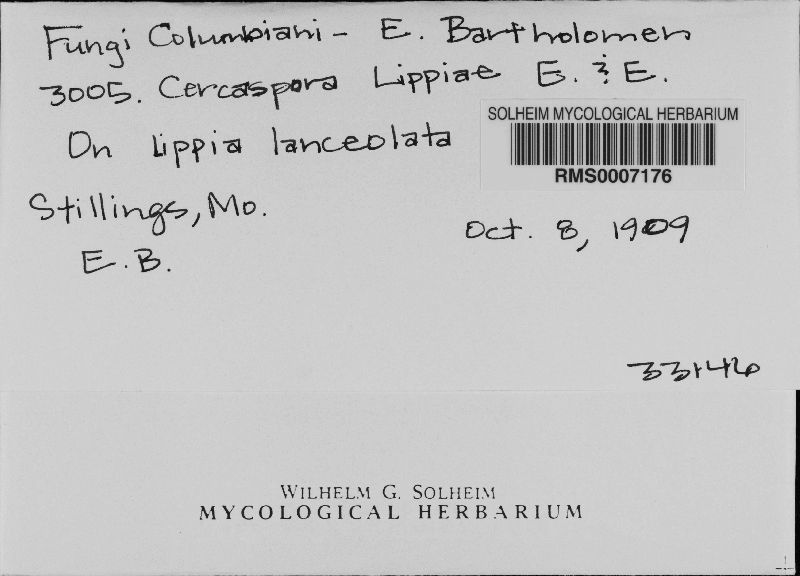 Fungi Columbiani - E. Bartholomew
3005. Cercaspora Lippiae E. & E.
On Lippia lanceolata
SOLHEIM MYCOLOGICAL HERBARIUM
RMS0007176
Stillings, Mo.
Oct. 8, 1909
E. B.
33146
WILHELM G. SOLHEIM
MYCOLOGICAL HERBARIUM